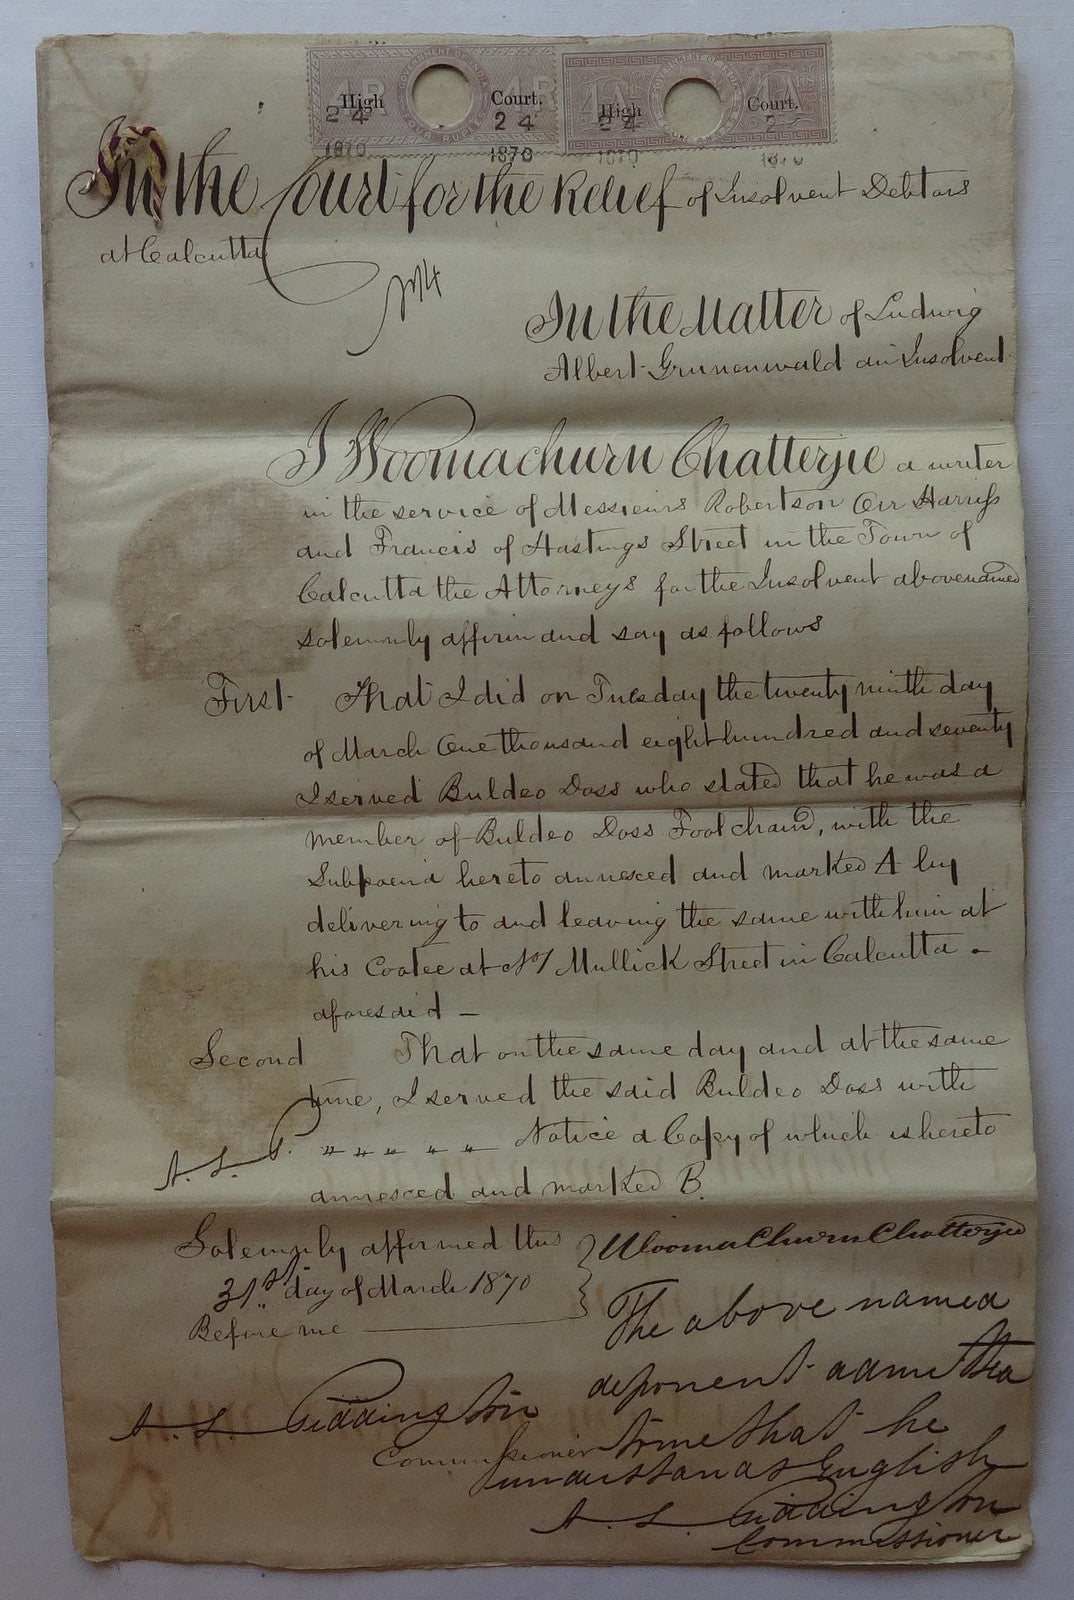 High Court. High Court.
24 24 24
1870 1870 1870 1870
In the Court for the Relief of Insolvent Debtors
at Calcutta
In the Matter of Ludwig
Albert Grunenwald an Insolvent
I Woomachurn Chatterjie a writer
in the service of Messieurs Robertson Orr Harriss
and Francis of Hastings Street in the Town of
Calcutta the Attorneys for the Insolvent abovenamed
solemnly affirm and say as follows
First That I did on Tuesday the twenty ninth day
of March One thousand eight hundred and seventy
I served Buldeo Doss who stated that he was a
member of Buldeo Doss Foolchand, with the
Subpoena hereto annexed and marked A by
delivering to and leaving the same with him at
his Cootee at No 1 Mullick Street in Calcutta -
aforesaid -
Second That on the same day and at the same
time, I served the said Buldeo Doss with
A. L. P. " " " " " Notice a Copy of which is hereto
annexed and marked B.
Solemnly affirmed this
31st day of March 1870
Before me
WoomaChurn Chatterjie
The above named
deponent admitted
to me that he
understands English
A. L. Piddington
Commissioner
A. L. Piddington
Commissioner